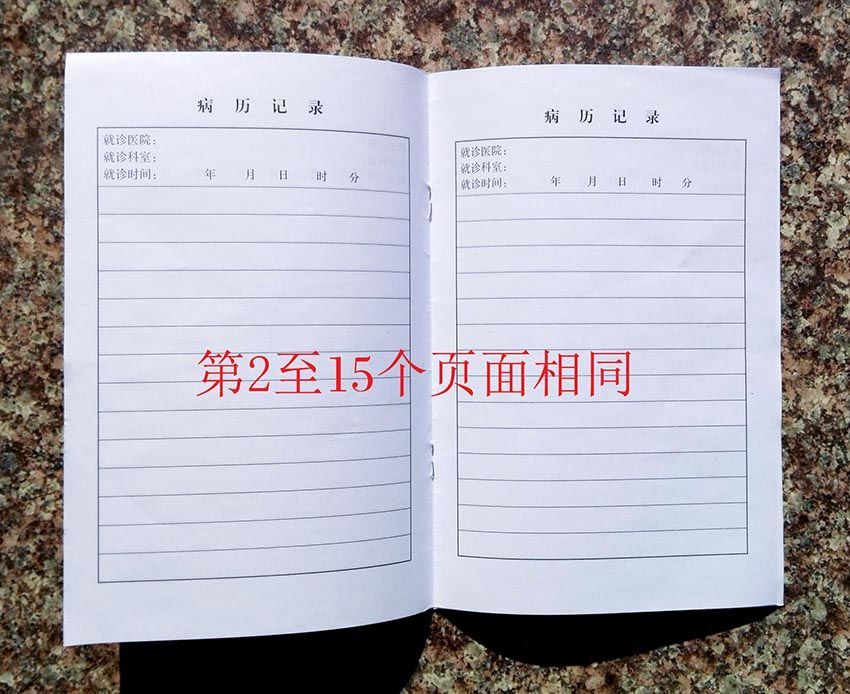 病历记录
就诊医院：
就诊科室：
就诊时间： 年 月 日 时 分
病历记录
就诊医院：
就诊科室：
就诊时间： 年 月 日 时 分
第2至15个页面相同